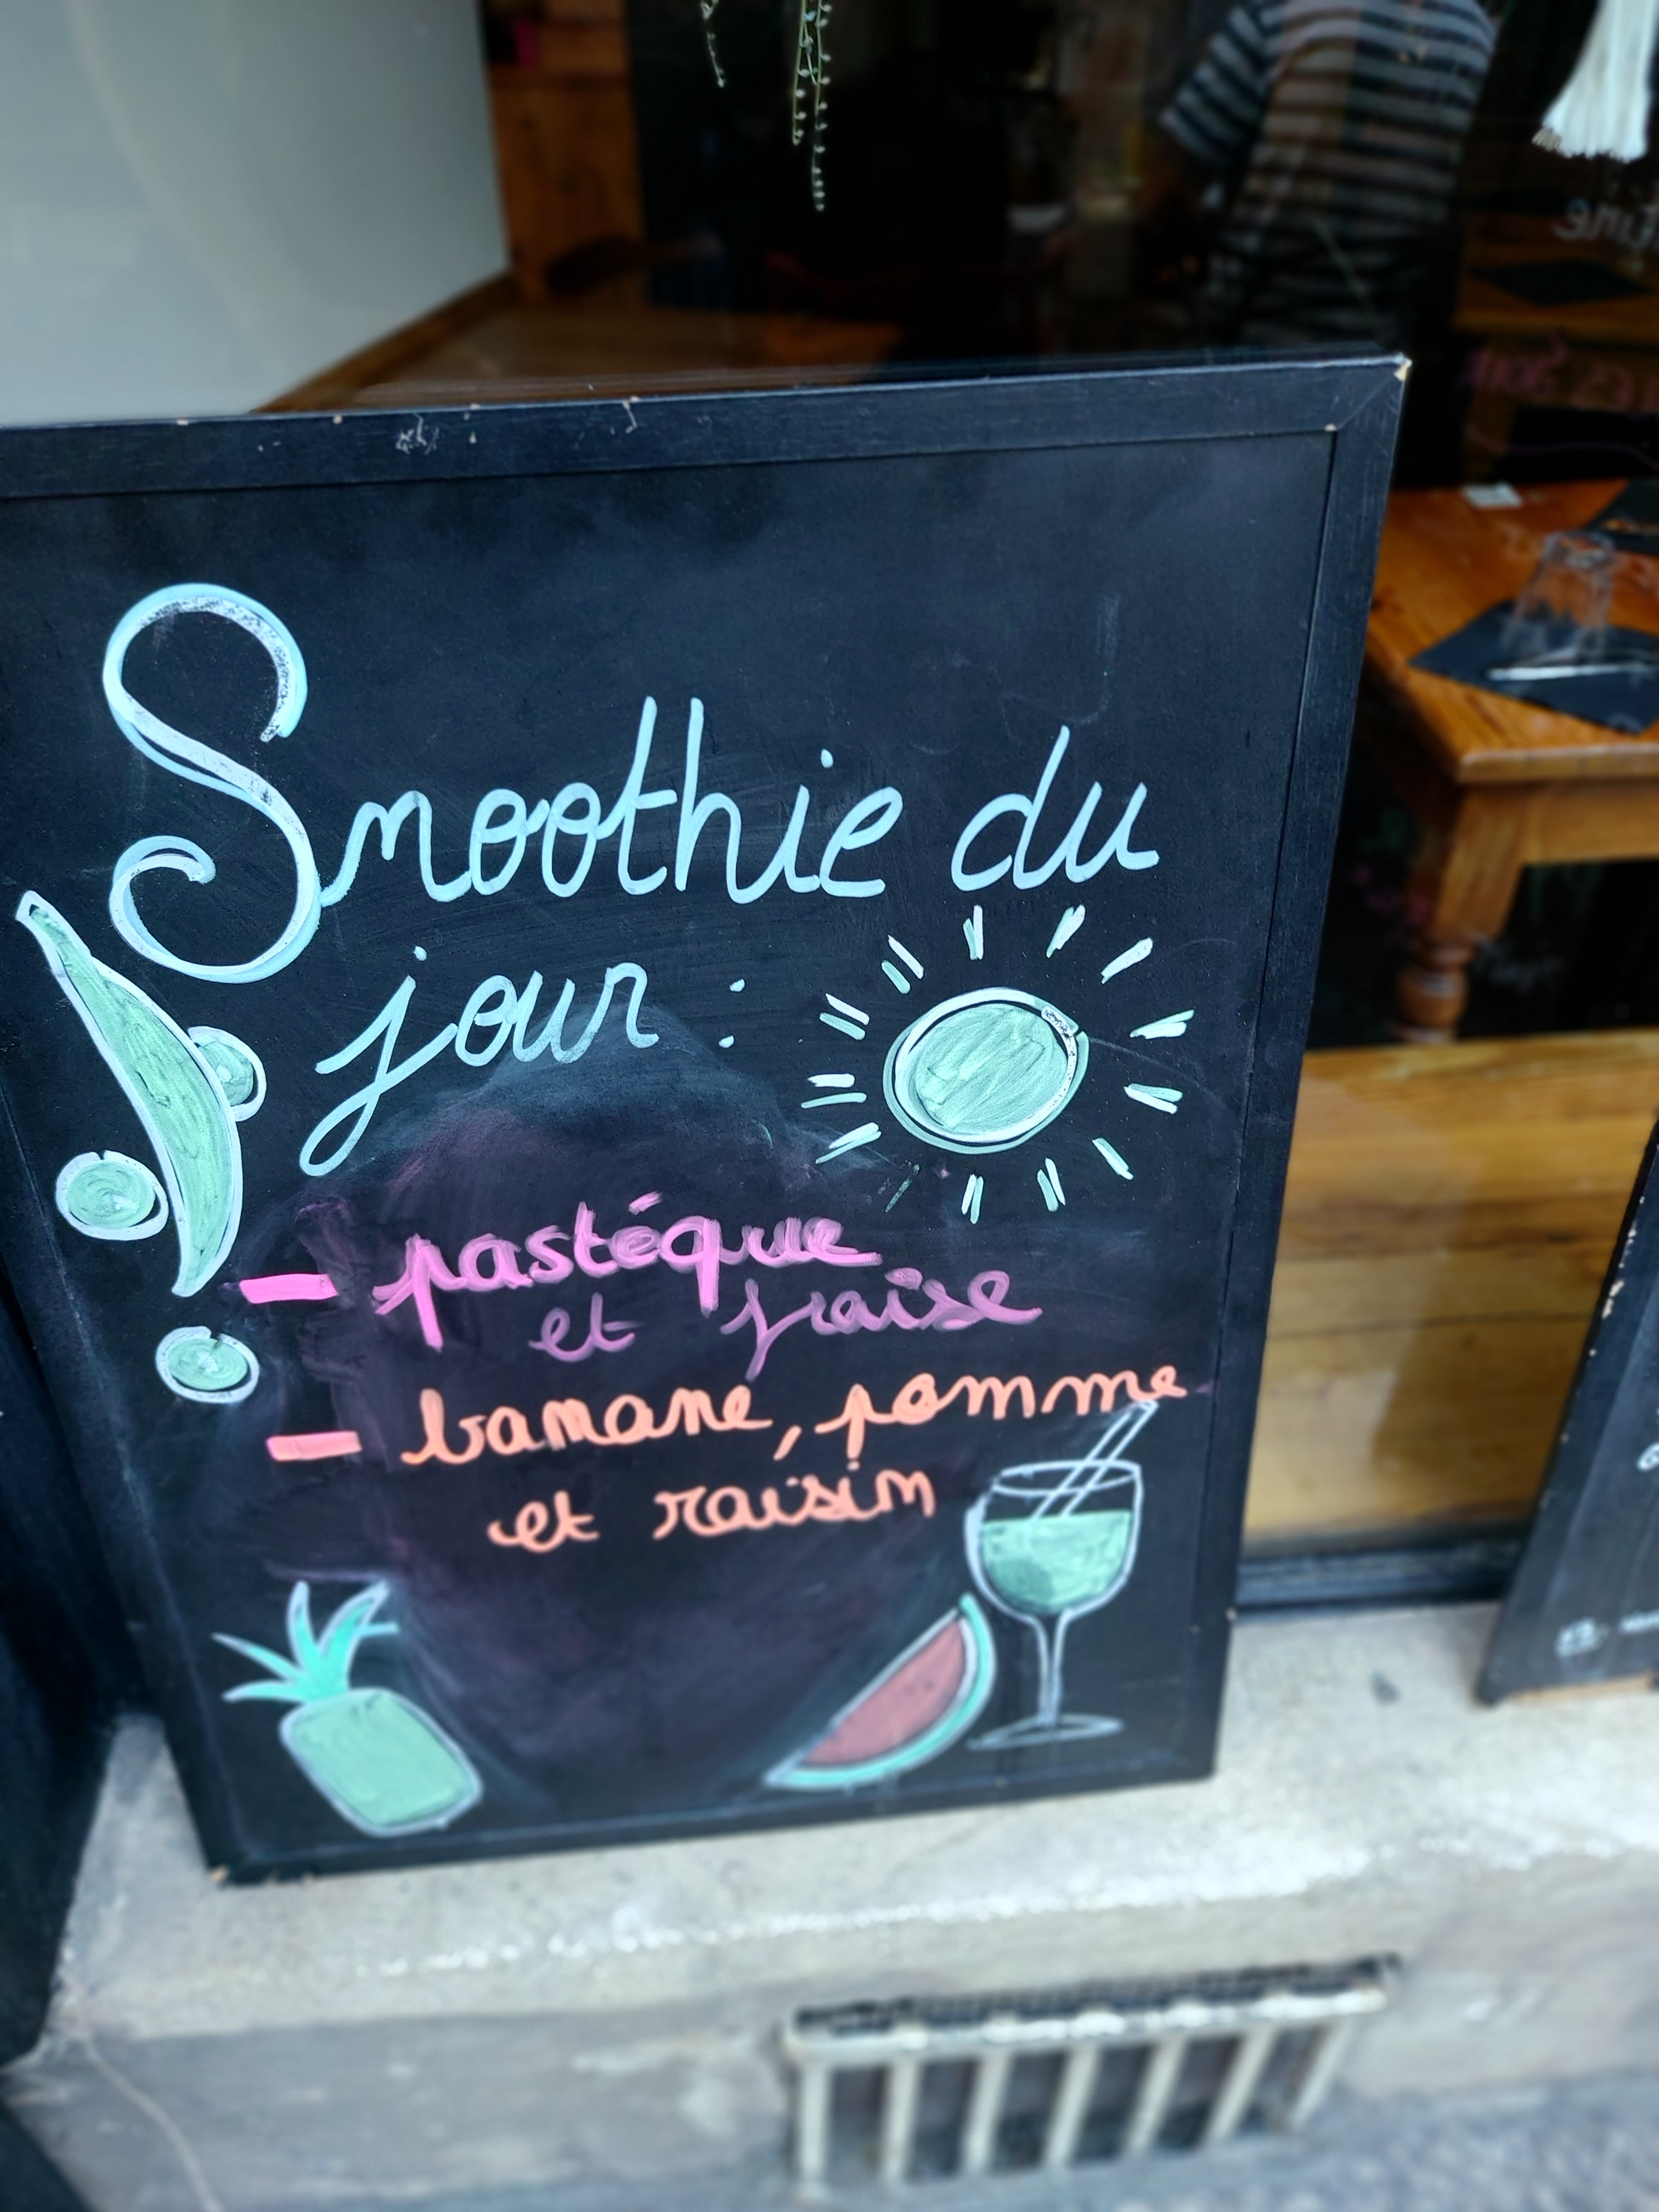 Smoothie du
jour :
- pastéque
et fraise
- banane, pomme
et raisin